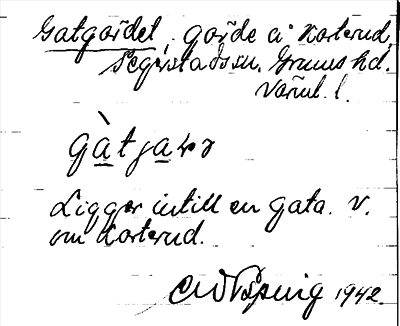 Gatgärdet, gärde å Korterud,
Segerstads sn. Grums hd.
Värml. l.
gàtjarə
Ligger intill en gata. v.
om Korterud.
1942.